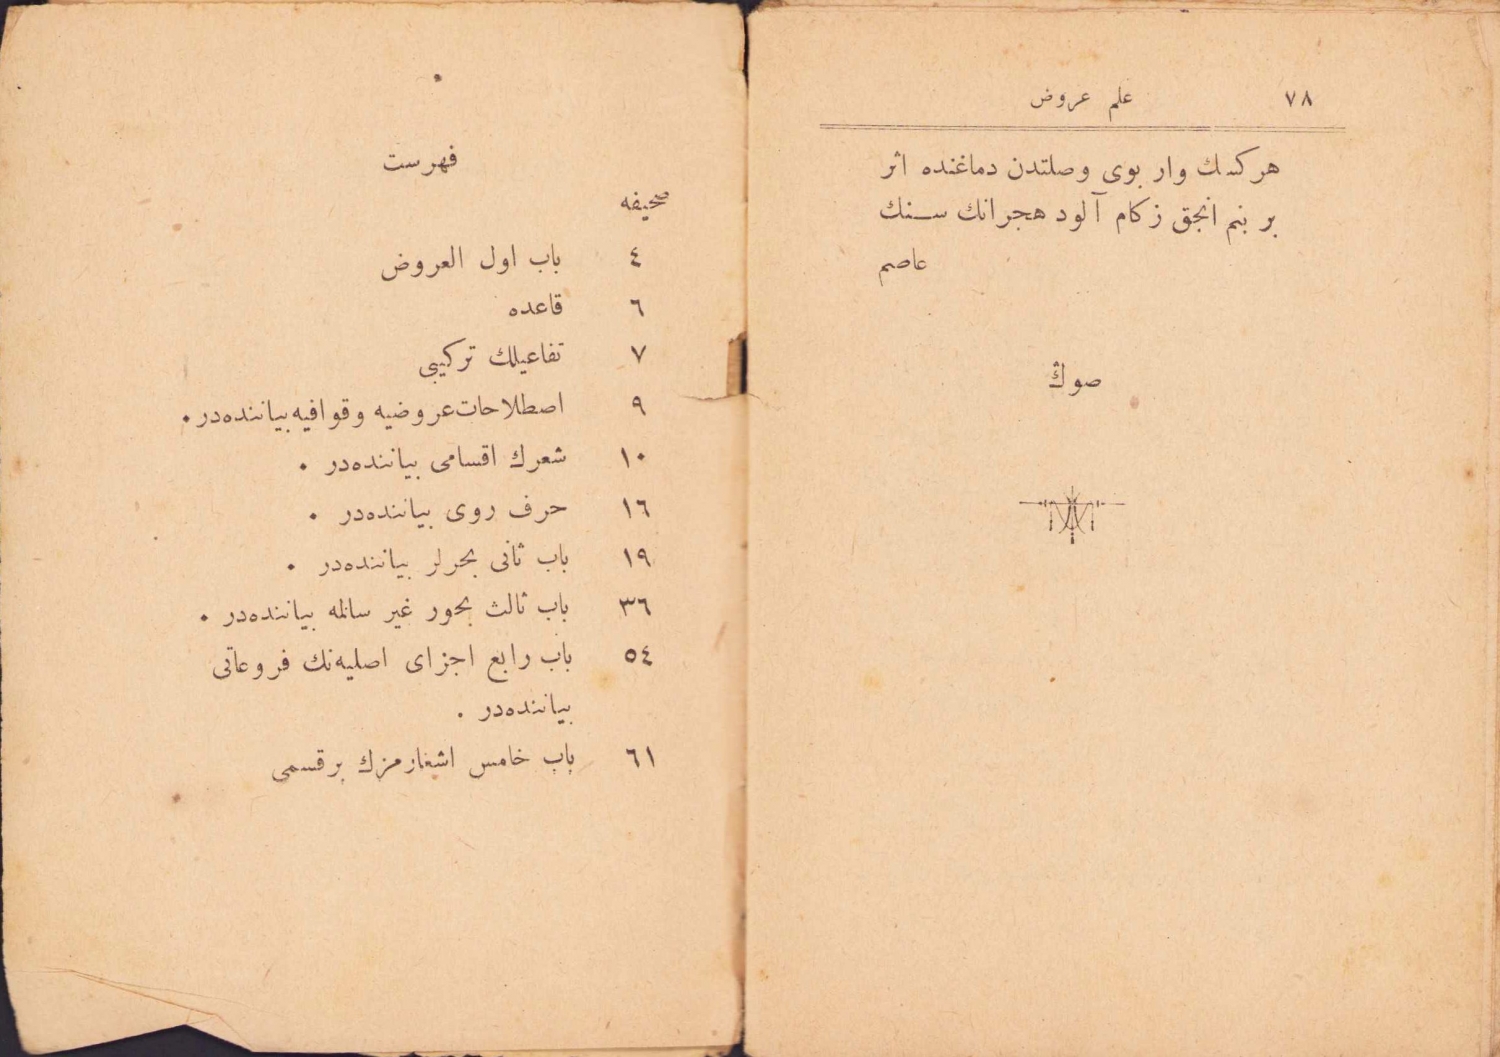 ٧٨ علم عروض
هركسك وار بوى وصلتدن دماغنده اثر
بر بنم انجق زكام آلود هجرانك سنك
عاصم
صوڭ
فهرست
صحيفه
٤ باب اول العروض
٦ قاعده
٧ تفاعيلك تركيبى
٩ اصطلاحات عروضيه وقوافيه بياننده‌در.
١٠ شعرك اقسامى بياننده‌در .
١٦ حرف روى بياننده‌در .
١٩ باب ثانى بحرلر بياننده‌در .
٣٦ باب ثالث بحور غير سالمه بياننده‌در .
٥٤ باب رابع اجزاى اصليه‌نك فروعاتى
بياننده‌در .
٦١ باب خامس اشعارمزك برقسمى